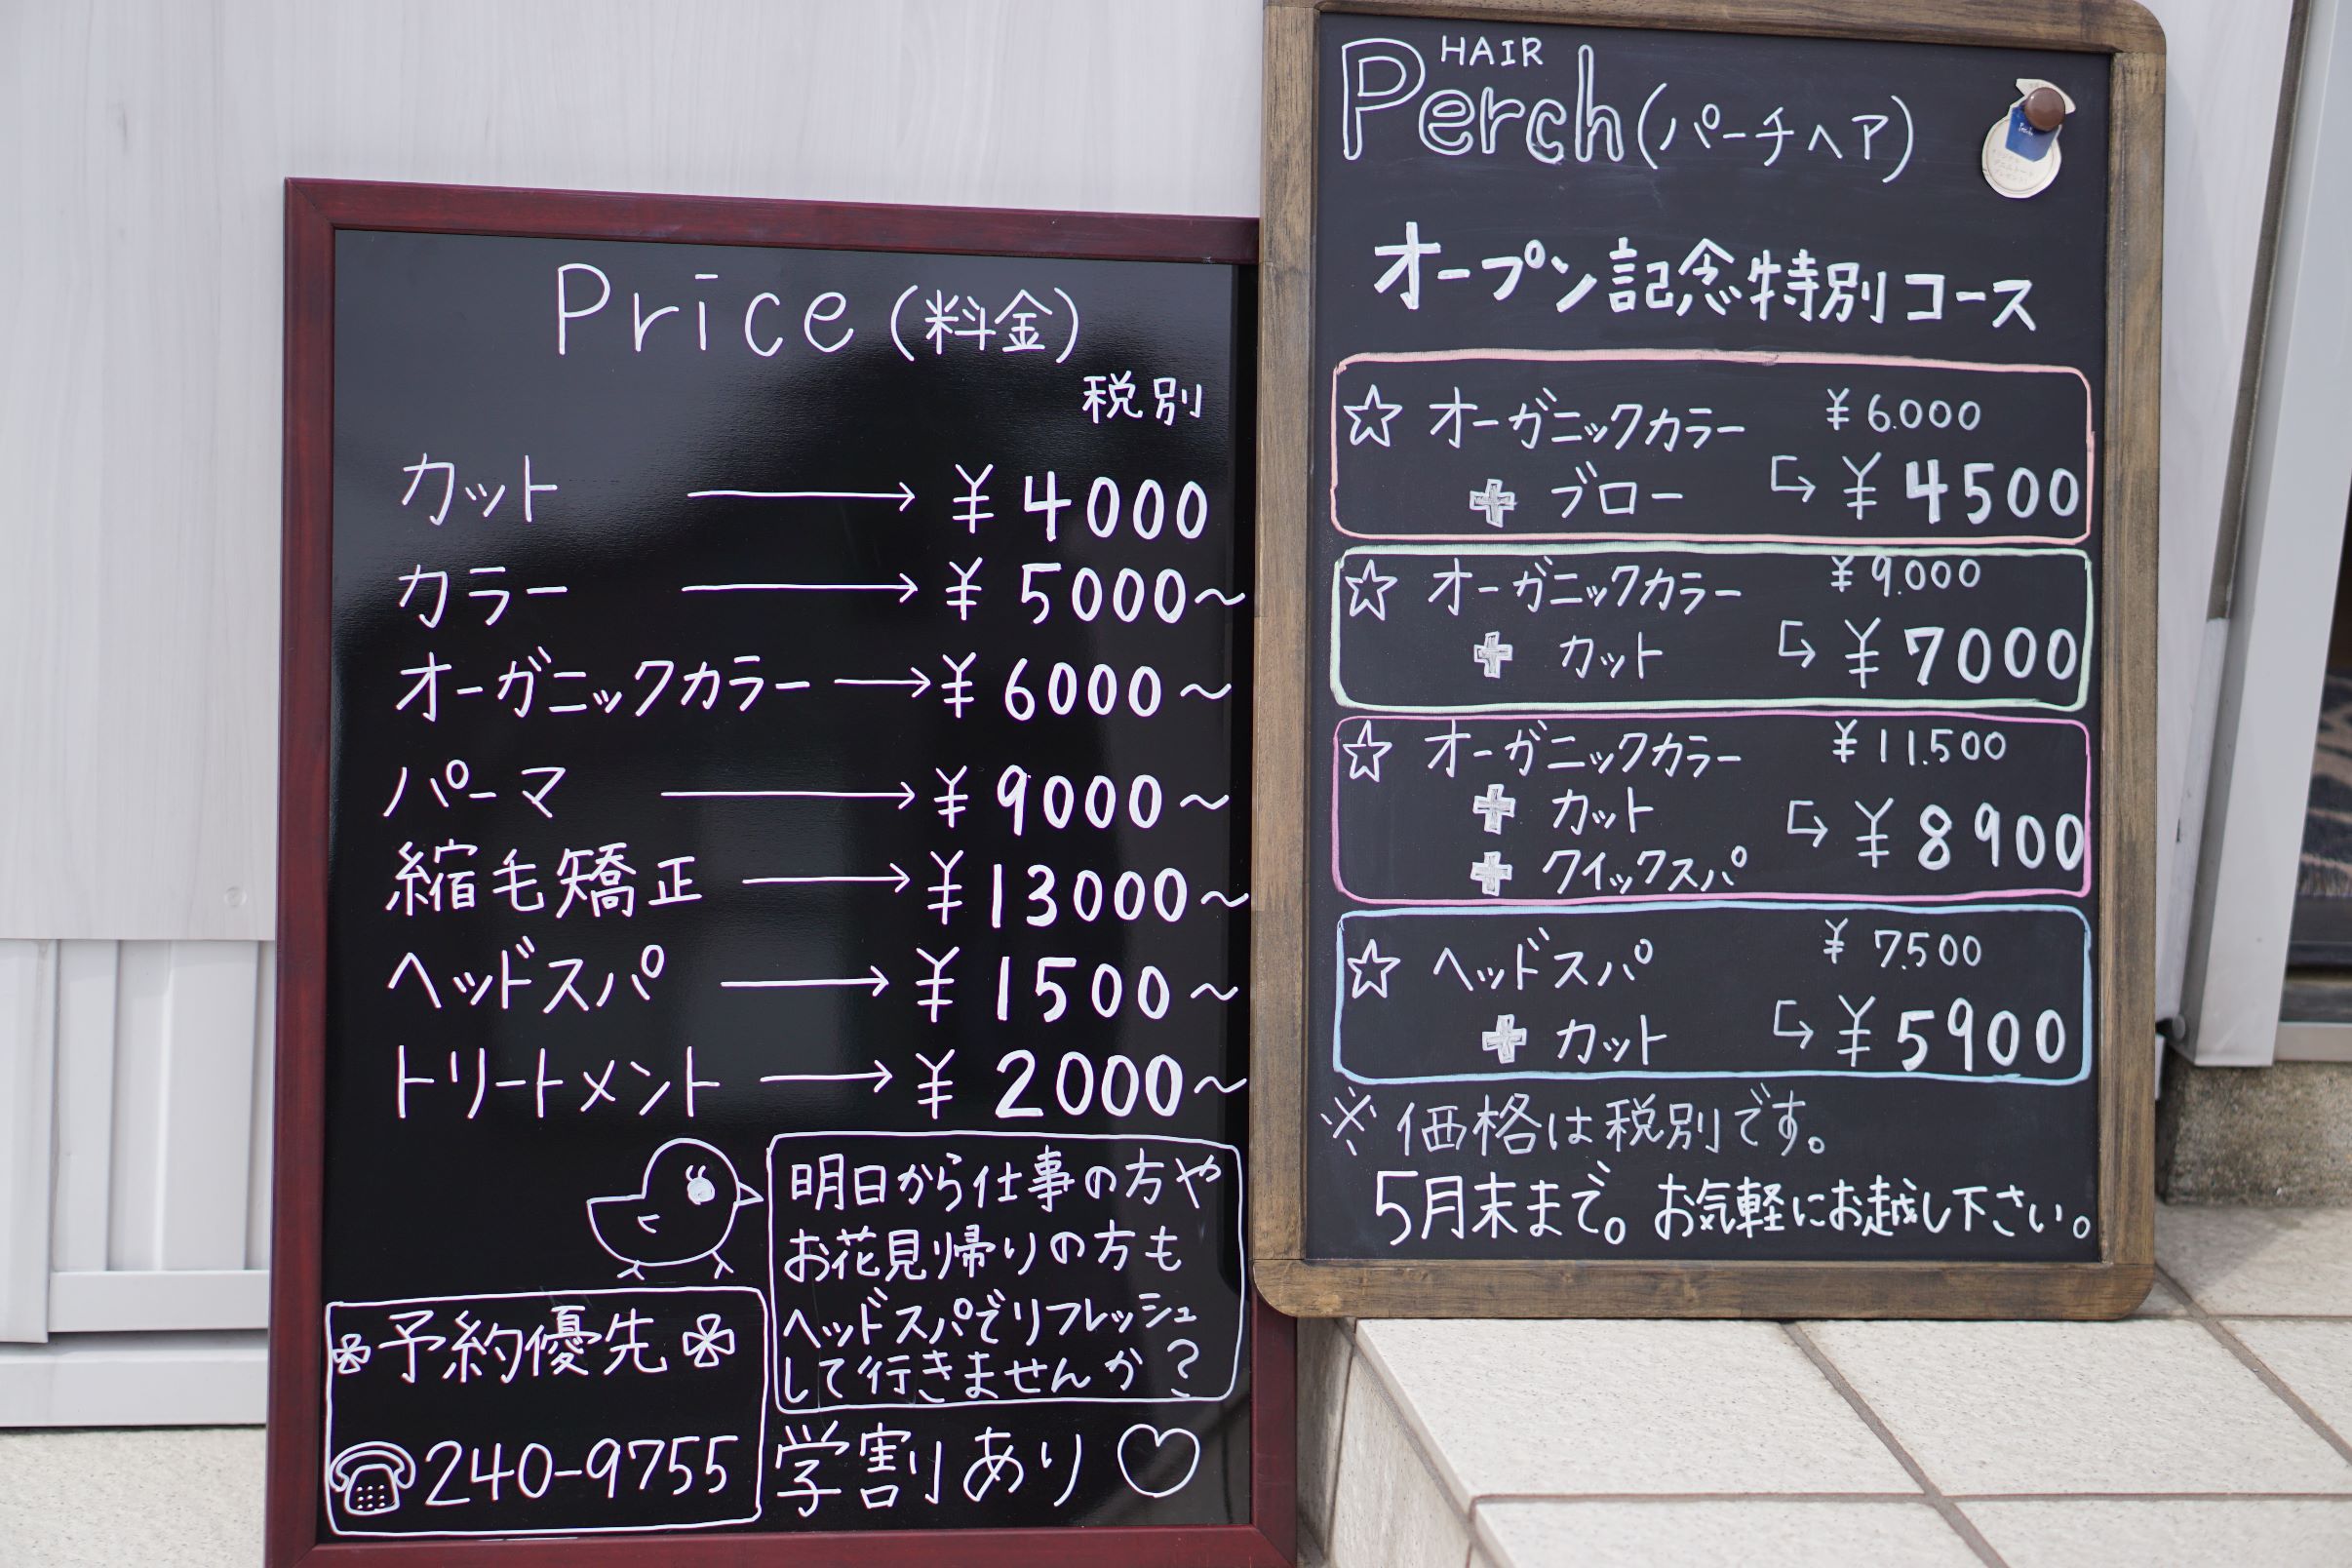 Price (料金)
税別
カット → ¥4000
カラー → ¥5000～
オーガニックカラー → ¥6000～
パーマ → ¥9000～
縮毛矯正 → ¥13000～
ヘッドスパ → ¥1500～
トリートメント → ¥2000～
明日から仕事の方や
お花見帰りの方も
ヘッドスパでリフレッシュ
して行きませんか?
予約優先
☎240-9755
学割あり♡
HAIR
Perch(パーチヘア)
オープン記念特別コース
☆ オーガニックカラー ¥6.000
+ ブロー ↳ ¥4500
☆ オーガニックカラー ¥9.000
+ カット ↳ ¥7000
☆ オーガニックカラー ¥11.500
+ カット ↳ ¥8900
+ クイックスパ
☆ ヘッドスパ ¥7.500
+ カット ↳ ¥5900
※ 価格は税別です。
5月末まで。お気軽にお越し下さい。